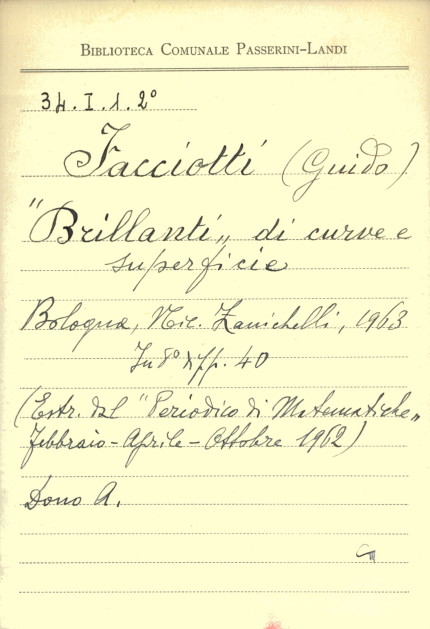 BIBLIOTECA COMUNALE PASSERINI-LANDI
34.I.1.2°
Facciotti (Guido)
"Brillanti„ di curve e
superficie
Bologna, Nic. Zanichelli, 1963
In 8° pp. 40
(Estr. dal "Periodico di Matematiche„
Febbraio-Aprile-Ottobre 1962)
Dono A.